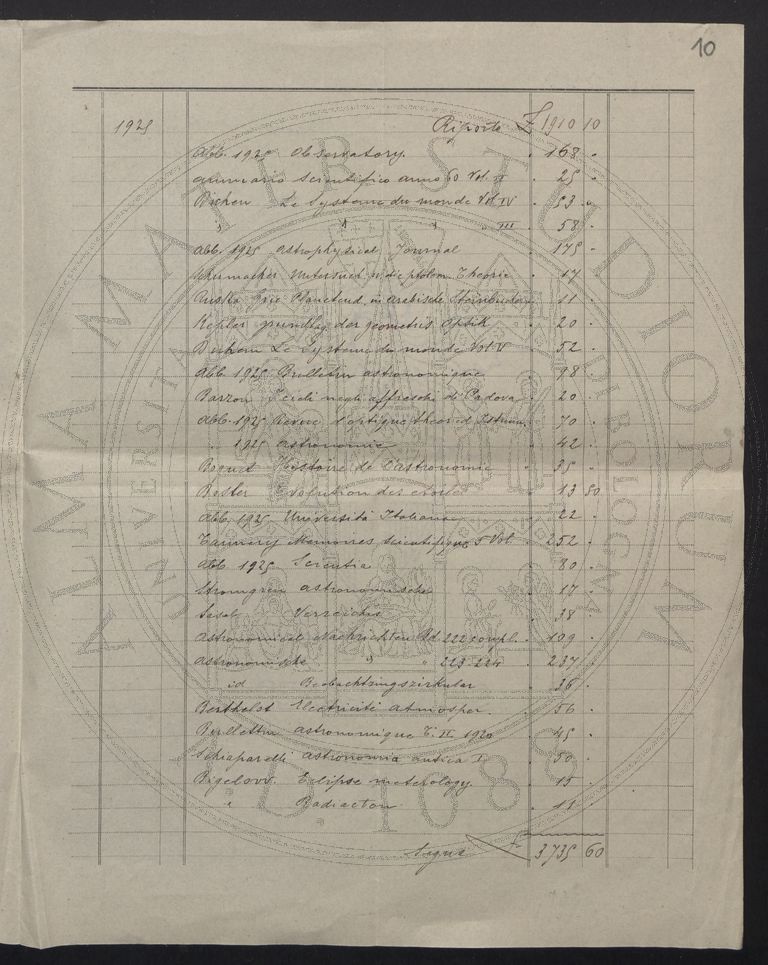 10
1925 Riporto £ 1910 10
Abb. 1925 Observatory. 168 -
annuario scientifico anno 60 Vol. II 25 -
Duhem Le Systeme du monde Vol IV 53 -
" " " " III 58 -
Abb. 1925 astrophysical Journal 175 -
Schumacher Untersuch. ü. die ptolem. Theorie 17
Ruska Grie. Planetend. in arabische Steinbucher 11 -
Kepler grundlag der geometris optik 20 -
Duhem Le Systeme du monde Vol V 52 -
Abb. 1925 Bulletin astronomique 98 -
Barzon I cieli negli affreschi di Padova 20 -
Abb. 1925 Revue d'optique theor ed Istrum. 70 -
" 1925 astronomie 42 -
Boquet Histoire de l'astronomie 35 -
Bosler Evolution des étoiles 13 50
Abb. 1925 Università Italiana 22 -
Tannery Memoires scientifique 5 Vol. 252 -
Abb 1925 Scientia 80 -
Stromgren astronomische 17 -
Verzeichn 38 -
Astronomical Nachrichten Bd 222 compl. 199 -
Astronomische " " 223-224 237 -
id Beobachtungszirkular 36 -
Berthelot Electricité atmospher. 56 -
Bullettin astronomique T. II 1920 45 -
Schiaparelli astronomia antica I 50 -
Bigelow. Eclipse meterology. 15 -
" Radiacton 11 -
Segue £ 3735 60
ALMA MATER STUDIORUM
UNIVERSITÀ DI BOLOGNA
A.D. 1088